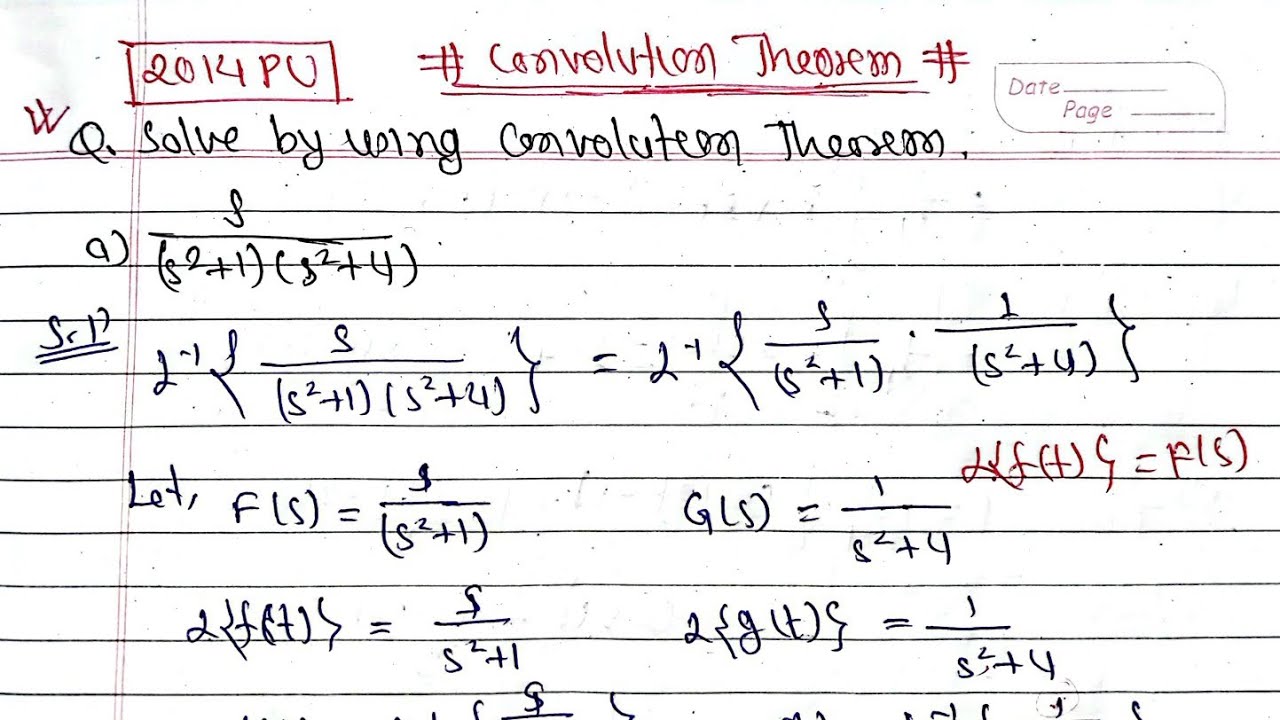 2014 PU # Convolution Theorem #
Date
Page
Q. Solve by using Convolution Theorem.
a) s/((s²+1)(s²+4))
Solⁿ
L⁻¹{s/((s²+1)(s²+4))} = L⁻¹{s/(s²+1) · 1/(s²+4)}
L{f(t)} = F(s)
Let, F(s) = s/(s²+1) G(s) = 1/(s²+4)
L{f(t)} = s/(s²+1) L{g(t)} = 1/(s²+4)